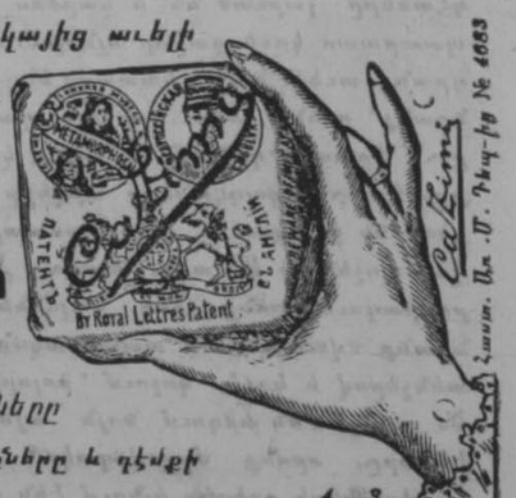 կայից աւելի
METAMORPHOSA
ПАТЕНТЪ
ВЪ АНГЛIИ
BY Royal Lettres Patent
Ca Zimi
Հաստ. Առ. Մ. Դեպ-ից № 4683
ները
ները և դէմքի